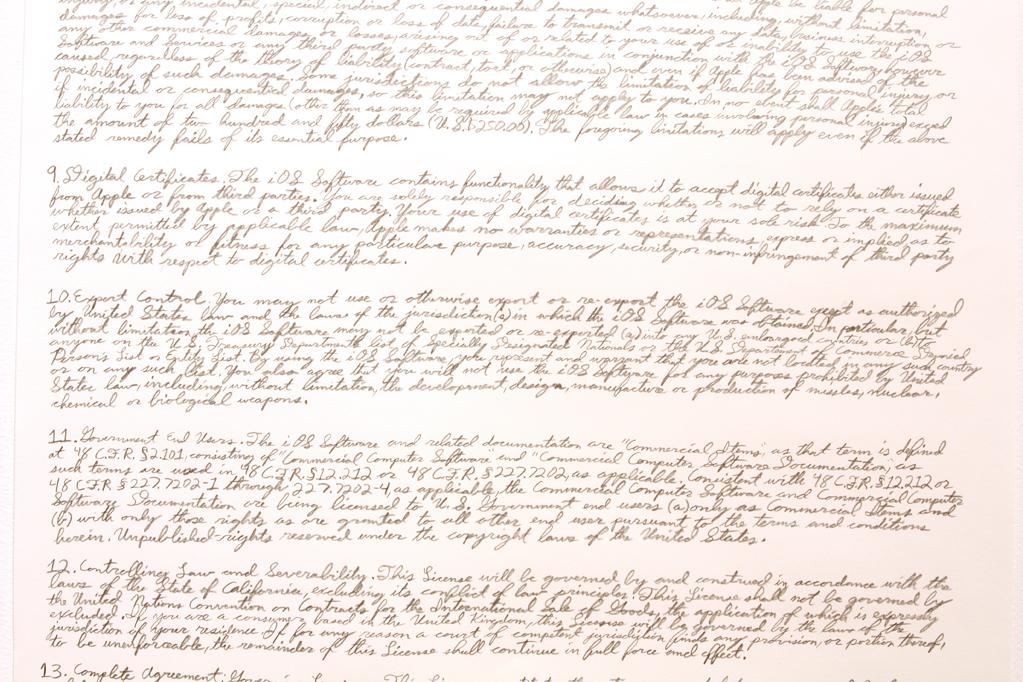 injury, or any incidental, special, indirect or consequential damages whatsoever, including, without limitation,
damages for loss of profits, corruption or loss of data, failure to transmit or receive any data, business interruption or
any other commercial damages or losses, arising out of or related to your use of or inability to use the iOS
Software and Services or any third party software or applications in conjunction with the iOS Software, however
caused, regardless of the theory of liability (contract, tort, or otherwise) and even if Apple has been advised of the
possibility of such damages. Some jurisdictions do not allow the limitation of liability for personal injury, or
if incidental or consequential damages, so this limitation may not apply to you. In no event shall Apple's total
liability to you for all damages (other than as may be required by applicable law in cases involving personal injury) exceed
the amount of two hundred and fifty dollars (U.S.$250.00). The foregoing limitations will apply even if the above
stated remedy fails of its essential purpose.
9. Digital Certificates. The iOS Software contains functionality that allows it to accept digital certificates either issued
from Apple or from third parties. You are solely responsible for deciding whether or not to rely on a certificate
whether issued by Apple or a third party. Your use of digital certificates is at your sole risk. To the maximum
extent permitted by applicable law, Apple makes no warranties or representations, express or implied as to
merchantability or fitness for any particular purpose, accuracy, security, or non-infringement of third party
rights with respect to digital certificates.
10. Export Control. You may not use or otherwise export or re-export the iOS Software except as authorized
by United States law and the laws of the jurisdiction(s) in which the iOS Software was obtained. In particular, but
without limitation, the iOS Software may not be exported or re-exported (a) into any U.S. embargoed countries or (b) to
anyone on the U.S. Treasury Department's list of Specially Designated Nationals or the U.S. Department of Commerce Denied
Person's List or Entity List. By using the iOS Software, you represent and warrant that you are not located in any such country
or on any such list. You also agree that you will not use the iOS Software for any purposes prohibited by United
States law, including, without limitation, the development, design, manufacture or production of missles, nuclear,
chemical or biological weapons.
11. Government End Users. The iOS Software and related documentation are "Commercial Items", as that term is defined
at 48 C.F.R. §2.101, consisting of "Commercial Computer Software" and "Commercial Computer Software Documentation", as
such terms are used in 48 C.F.R. §12.212 or 48 C.F.R. §227.7202, as applicable. Consistent with 48 C.F.R. §12.212 or
48 C.F.R. §227.7202-1 through 227.7202-4, as applicable, the Commercial Computer Software and Commercial Computer
Software Documentation are being licensed to U.S. Government end users (a) only as Commercial Items and
(b) with only those rights as are granted to all other end user pursuant to the terms and conditions
herein. Unpublished-rights reserved under the copyright laws of the United States.
12. Controlling Law and Severability. This License will be governed by and construed in accordance with the
laws of the State of California, excluding its conflict of law principles. This License shall not be governed by
the United Nations Convention on Contracts for the International Sale of Goods, the application of which is expressly
excluded. If you are a consumer based in the United Kingdom, this License will be governed by the laws of the
jurisdiction of your residence. If for any reason a court of competent jurisdiction finds any provision, or portion thereof,
to be unenforceable, the remainder of this License shall continue in full force and effect.
13. Complete Agreement;